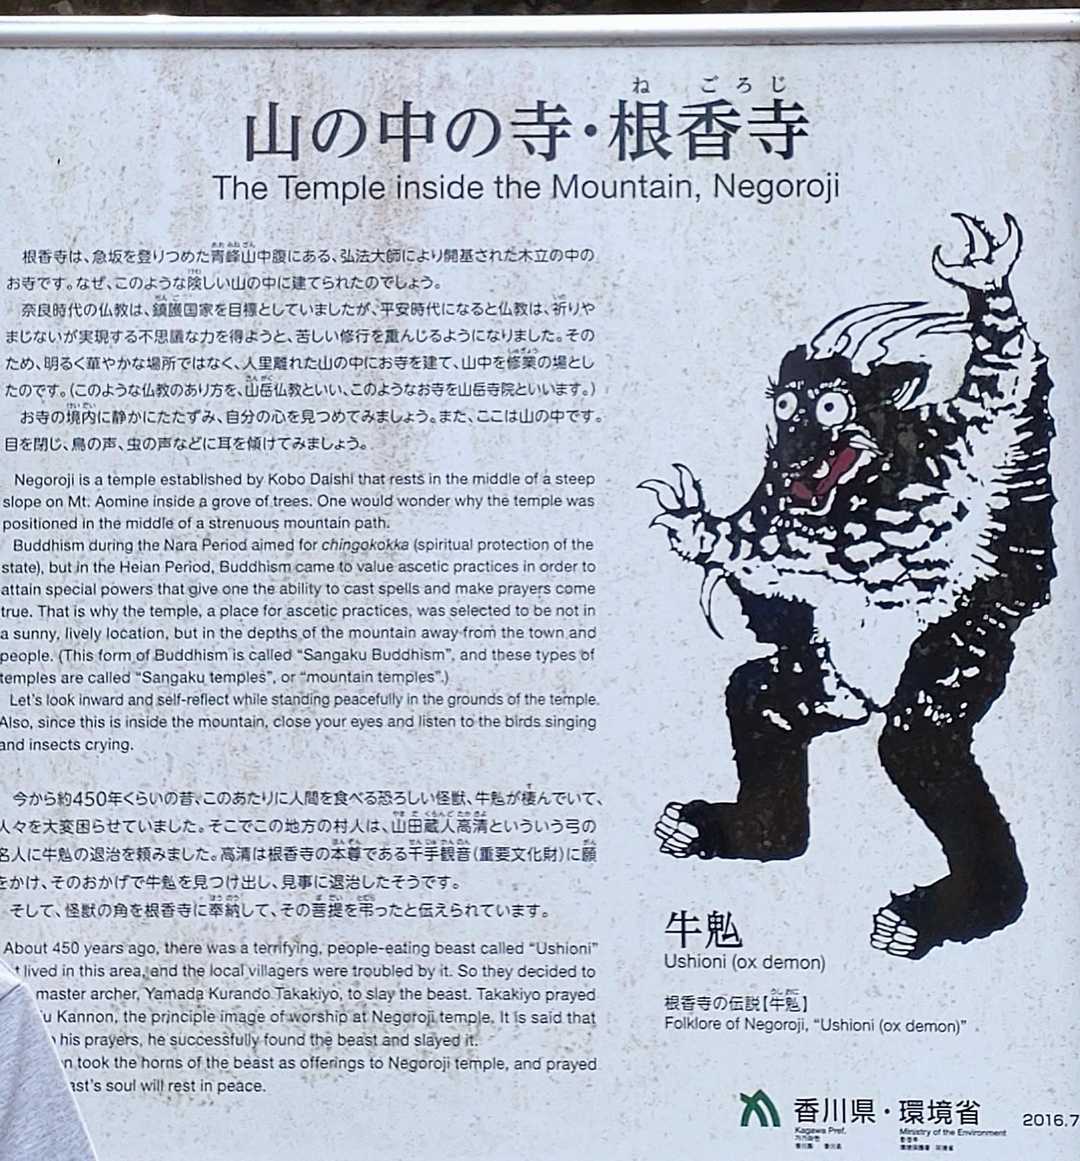 ね ご ろ じ
山の中の寺・根香寺
The Temple inside the Mountain, Negoroji
根香寺は、急坂を登りつめた青峰山中腹にある、弘法大師により開基された木立の中の
お寺です。なぜ、このような険しい山の中に建てられたのでしょう。
奈良時代の仏教は、鎮護国家を目標としていましたが、平安時代になると仏教は、祈りや
まじないが実現する不思議な力を得ようと、苦しい修行を重んじるようになりました。その
ため、明るく華やかな場所ではなく、人里離れた山の中にお寺を建て、山中を修業の場とし
たのです。(このような仏教のあり方を、山岳仏教といい、このようなお寺を山岳寺院といいます。)
お寺の境内に静かにたたずみ、自分の心を見つめてみましょう。また、ここは山の中です。
目を閉じ、鳥の声、虫の声などに耳を傾けてみましょう。
Negoroji is a temple established by Kobo Daishi that rests in the middle of a steep
slope on Mt. Aomine inside a grove of trees. One would wonder why the temple was
positioned in the middle of a strenuous mountain path.
Buddhism during the Nara Period aimed for chingokokka (spiritual protection of the
state), but in the Heian Period, Buddhism came to value ascetic practices in order to
attain special powers that give one the ability to cast spells and make prayers come
true. That is why the temple, a place for ascetic practices, was selected to be not in
a sunny, lively location, but in the depths of the mountain away from the town and
people. (This form of Buddhism is called “Sangaku Buddhism”, and these types of
temples are called “Sangaku temples”, or “mountain temples”.)
Let’s look inward and self-reflect while standing peacefully in the grounds of the temple.
Also, since this is inside the mountain, close your eyes and listen to the birds singing
and insects crying.
今から約450年くらいの昔、このあたりに人間を食べる恐ろしい怪獣、牛鬽が棲んでいて、
人々を大変困らせていました。そこでこの地方の村人は、山田蔵人高清といういう弓の
名人に牛鬽の退治を頼みました。高清は根香寺の本尊である千手観音(重要文化財)に願
をかけ、そのおかげで牛鬽を見つけ出し、見事に退治したそうです。
そして、怪獣の角を根香寺に奉納して、その菩提を弔ったと伝えられています。
About 450 years ago, there was a terrifying, people-eating beast called “Ushioni”
t lived in this area, and the local villagers were troubled by it. So they decided to
master archer, Yamada Kurando Takakiyo, to slay the beast. Takakiyo prayed
u Kannon, the principle image of worship at Negoroji temple. It is said that
his prayers, he successfully found the beast and slayed it.
n took the horns of the beast as offerings to Negoroji temple, and prayed
ast’s soul will rest in peace.
牛鬽
Ushioni (ox demon)
根香寺の伝説【牛鬽】
Folklore of Negoroji, “Ushioni (ox demon)”
香川県・環境省 2016.7
Kagawa Pref. Ministry of the Environment